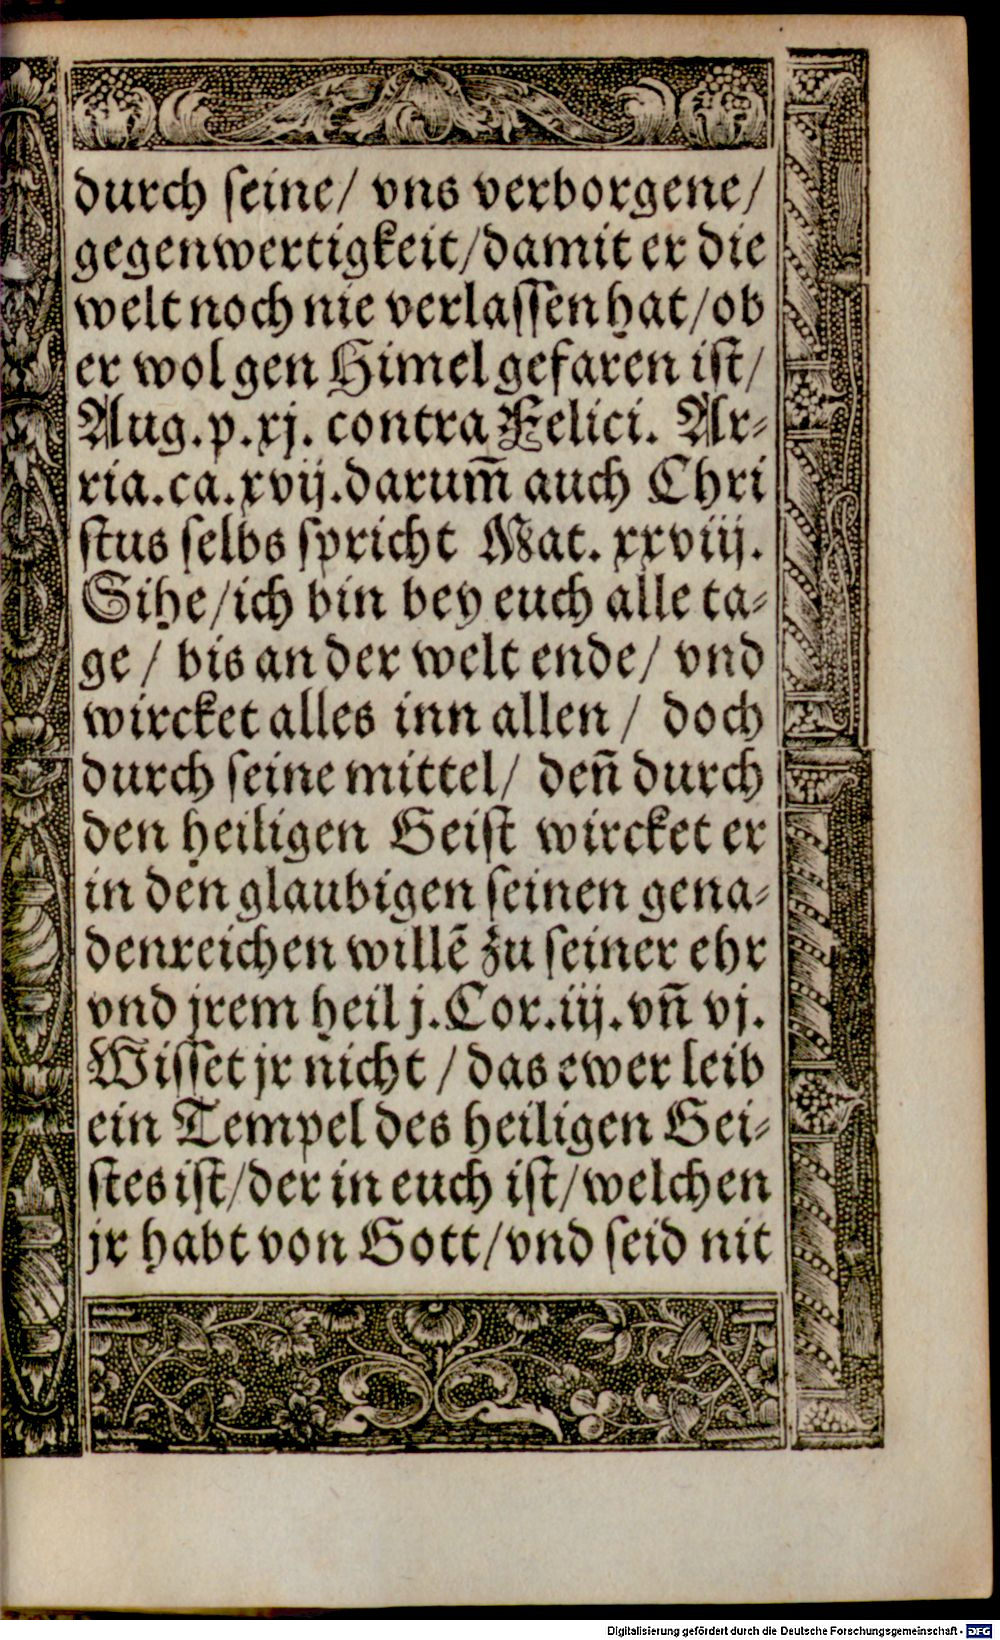 durch ſeine/ vns verborgene/
gegenwertigkeit/damit er die
welt noch nie verlaſſen hat/ob
er wol gen Himel gefaren iſt/
Aug. p. xj. contra Felici. Ar⸗
ria. ca. xvij. darum̄ auch Chri
ſtus ſelbs ſpricht Mat. xxviij.
Sihe/ich bin bey euch alle ta⸗
ge / bis an der welt ende/ vnd
wircket alles inn allen / doch
durch ſeine mittel/ den̄ durch
den heiligen Geiſt wircket er
in den glaubigen ſeinen gena⸗
denreichen willē zu ſeiner ehr
vnd jrem heil j. Cor. iij. vn̄ vj.
Wiſſet jr nicht / das ewer leib
ein Tempel des heiligen Gei⸗
ſtes iſt/der in euch iſt/welchen
jr habt von Gott/vnd ſeid nit
Digitalisierung gefördert durch die Deutsche Forschungsgemeinschaft - DFG